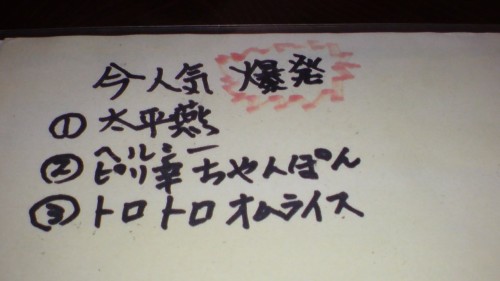 今人気 爆発
① 太平燕
ヘルシー
② ピリ辛ちゃんぽん
③ トロトロオムライス